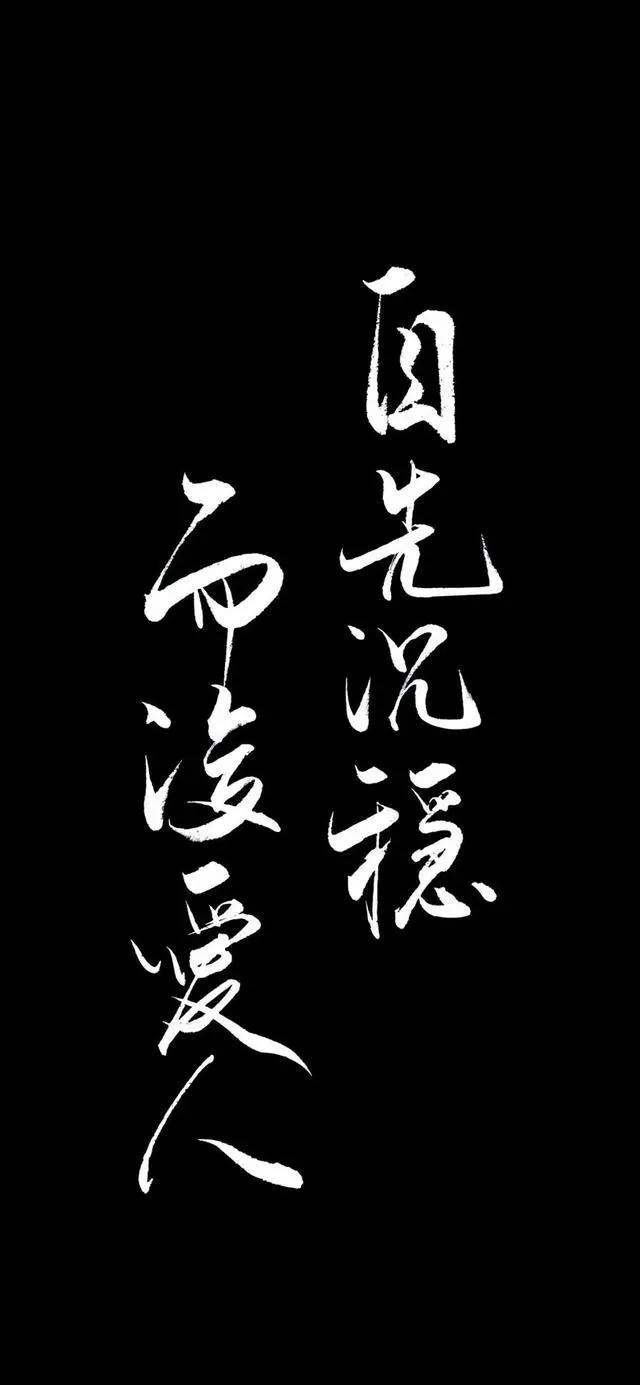 自先沉穩
而後愛人